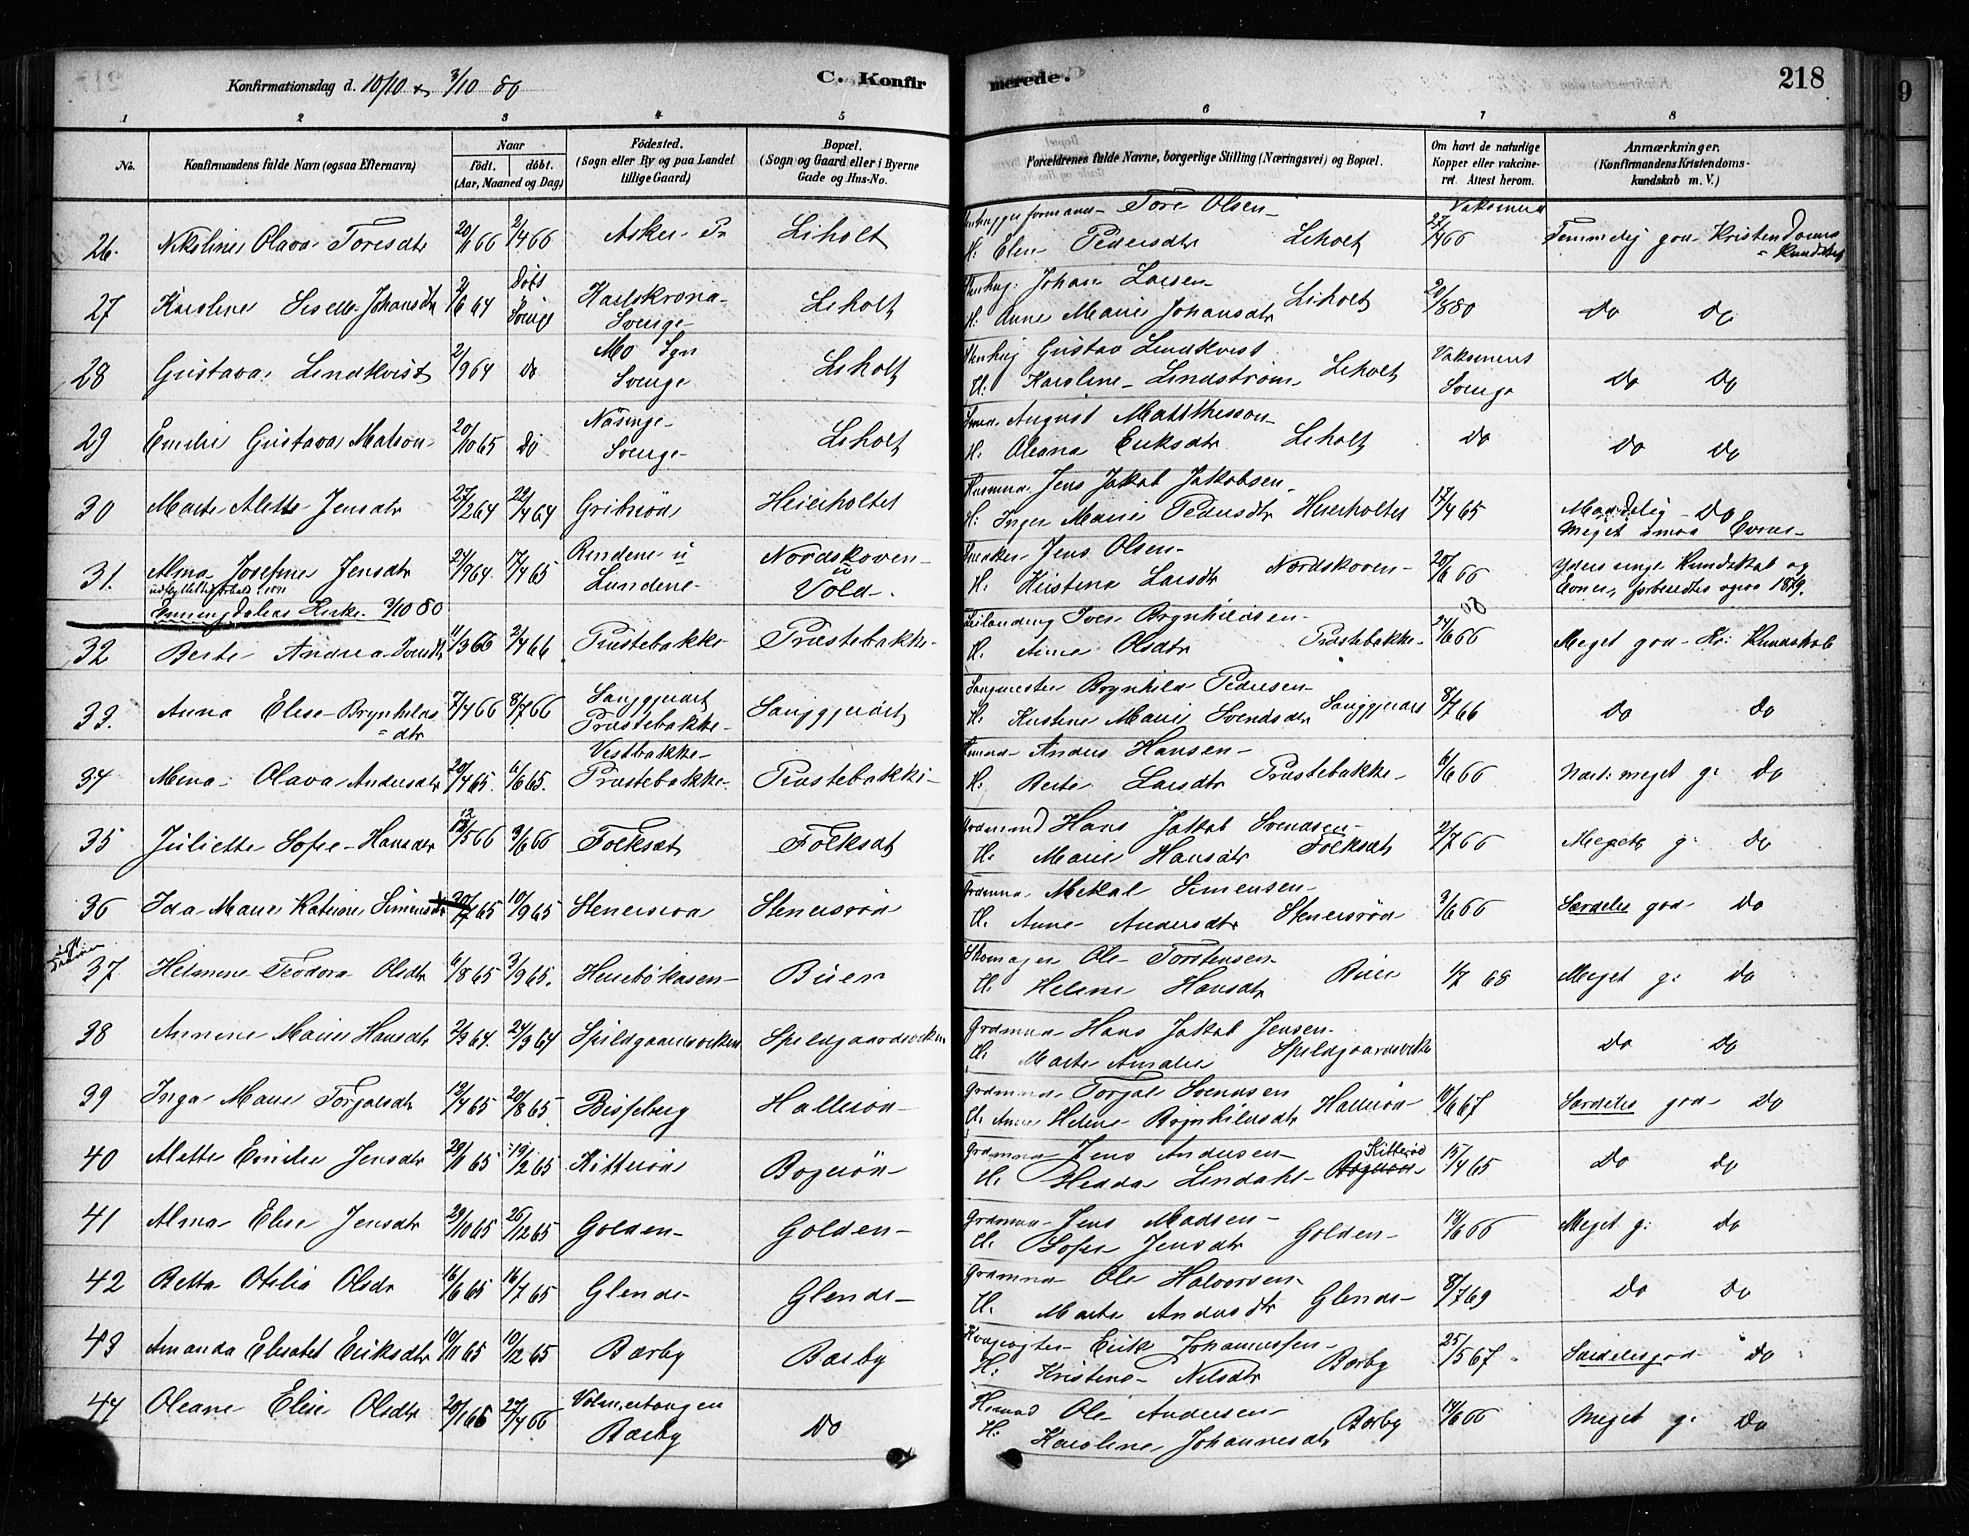 218
Konfirmationsdag d. 10/10 3/10 80
C. Konfir merede.
1 2 3 4 5 6 7 8
No.
Konfirmandens fulde Navn (ogsaa Efternavn)
Naar
født. døbt.
(Aar, Maaned og Dag)
Fødested.
(Sogn eller By og paa Landet
tillige Gaard)
Bopæl.
(Sogn og Gaard eller i Byerne
Gade og Hus-No.
Forældrenes fulde Navne, borgerlige Stilling (Næringsvei) og Bopæl.
Om havt de naturlige
Kopper eller vakcine-
ret. Attest herom.
Anmærkninger.
(Konfirmandens Kristendoms-
kundskab m. V.)
26. Nikoline Olava Toresdtr 20/1 66 2/4 66 Asker Liholt Tore Olsen
H: Elen Pedersdtr Liholt 27/4 66 Temmelig god Kristendoms
kundskab
27 Karoline Johansdtr 2/6 64 Døbt Sverige Karlskrona Sverige Liholt Johan Larsen
H: Anne Marie Johansdtr Liholt 20/8 80 Do Do
28 Gustava Lindkvist 2/9 64 Do Mo Sgn Sverige Liholt Gustav Lindkvist
H: Karoline Lindström Liholt Sverige Do Do
29 Emilie Gustava Matson 20/10 65 Do Näsinge Sverige Liholt August Matthesson
H: Oleana Eriksdtr Liholt Do Do Do
30 Marte Alette Jensdtr 27/2 64 22/4 64 Grimsröd Heierholtet Jens Jakob Jakobsen
H: Inger Marie Pedersdtr Heierholtet 17/4 65 Maadelig Do
Meget smaa Evner
31. Alma Josefine Jensdtr 24/9 64. 17/4 65 Rindene u Lundene Nordskoven u Vold Jens Olsen
H. Kristine Larsdtr Nordskoven 20/6 66 Kundskab og
Evner, forberedtes ogsaa 1879.
Enningdalens Kirke 3/10 80
32 Berte Andrea Iversdtr 11/3 66 2/4 66 Præstebakke Præstebakke Iver Brynhildsen
H. Anne Olsdtr Præstebakke 24/6 66 Meget god Kr: Kundskab
33. Anna Elise Brynhilds
dtr 7/4 66 8/7 66 Præstebakke Brynhild Pedersen
H. Kirstine Marie Svendsdtr 8/7 66 Do Do
34 Mina Olava Andersdtr 20/4 65. 6/6 65. Vestbakke
Præstebakke Præstebakke Anders Hansen
H: Berte Larsdtr Præstebakke 6/6 66 meget g: Do
35 Juliette Sofie Hansdtr 12/5 66 3/6 66 Folksæt Folksæt Hans Jakob Svendsen
H: Marie Hansdtr Folksæt 2/7 66 Meget g: Do
36 Ida Marie Katrine Simensdtr 65 10/9 65 Stenersröd Stenersröd Mikkel Simensen
H. Anne Andersdtr Stenersröd 3/6 66 Særdeles god Do
37 Helmine Teodora Olsdtr 6/8 65 3/9 65. Buer Skomager Ole Torstensen
H. Helene Hansdtr Buer 1/7 68 Meget g: Do
38 Annine Marie Hansdtr 2/3 64. 24/3 64 Spildgaardsvikken Spildgaardsvikken Grdmnd Hans Jakob Jensen
H: Marte Amalie Spildgaardsvikken Do Do
39 Inga Marie Torgalsdtr 13/4 65 20/8 65 Bisseberg Halleröd Grdmnd Torgal Svendsen
H. Anne Helene Brynhildsdtr Halleröd 10/6 67 Særdeles god Do
40 Alette Emilie Jensdtr 29/1 65 19/2 65 Kitteröd Bogeröd Grdmnd Jens Andersen Kitteröd
H. Hedda Lindahl 15/4 65 Do Do
41 Alma Elise Jensdtr 29/10 65 26/12 65 Golden Golden Grdmnd Jens Madsen
H. Sofie Jensdtr Golden 18/6 66 Meget g: Do
42 Betta Otelia Olsdr 16/6 65 16/7 65 Glende Glende Grdmnd Ole Halvorsen
H. Marte Andersdtr Glende 8/7 69 Do Do
43 Amanda Elisabet Eriksdtr 10/11 65 10/12 65 Bærby Bærby Erik Johannessen
H: Kristine Nilsdtr Bærby 25/5 67 Særdeles god Do
44 Oleane Elise Olsdtr 20/1 66 24/4 66 Bærby Do Ole Andersen
H: Karoline Johannesdtr Bærby 14/6 66 Meget g: Do